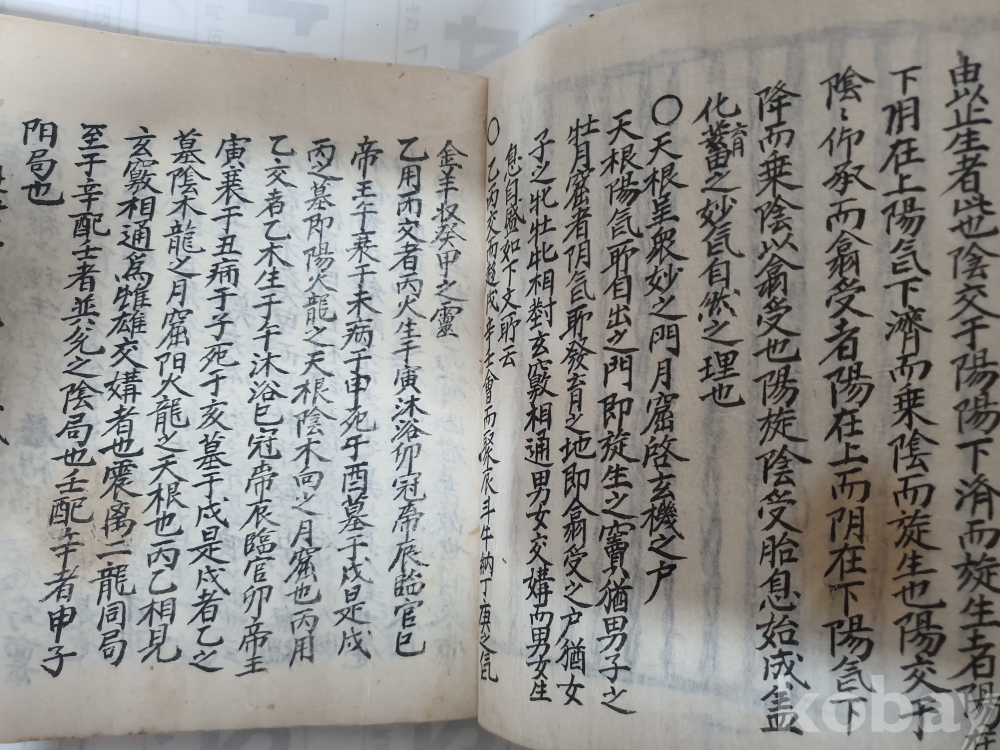 由以止生者此也陰交于陽陽下済而旋生者陽在
下阴在上陽气下濟而乗陰而旋生也陽交于
陰〻仰承而翕受者陽在上而阴在下陽气下
降而乗陰以翕受也陽旋陰受胎息始成盖
化育蓄之妙气自然之理也
〇天根呈衆妙之門月窟啓玄機之户
天根陽气所自出之門即旋生之竇猶男子之
牡月窟者阴气所發育之地即翕受之户猶女
子之牝牡牝相對玄竅相通男女交媾而男女生
息自驗如下文所云
〇乙丙交而趍戌辛壬會而聚辰斗牛納丁庚之气
金羊収癸甲之靈
乙用丙交者丙火生于寅沐浴卯冠帝辰臨官巳
帝王午衰于未病于申死于酉墓于戌是戌
丙之墓即陽火龍之天根陰木向之月窟也丙用
乙交者乙木生于午沐浴巳冠帝辰臨官卯帝王
寅衰于丑病于子死于亥墓于戌是戌者乙之
墓陰木龍之月窟阳火龍之天根也丙乙相見
玄竅相通爲雌雄交媾者也震离二龍同局
至于辛配壬者並兊之陰局也壬配辛者申子
阳局也
kobay